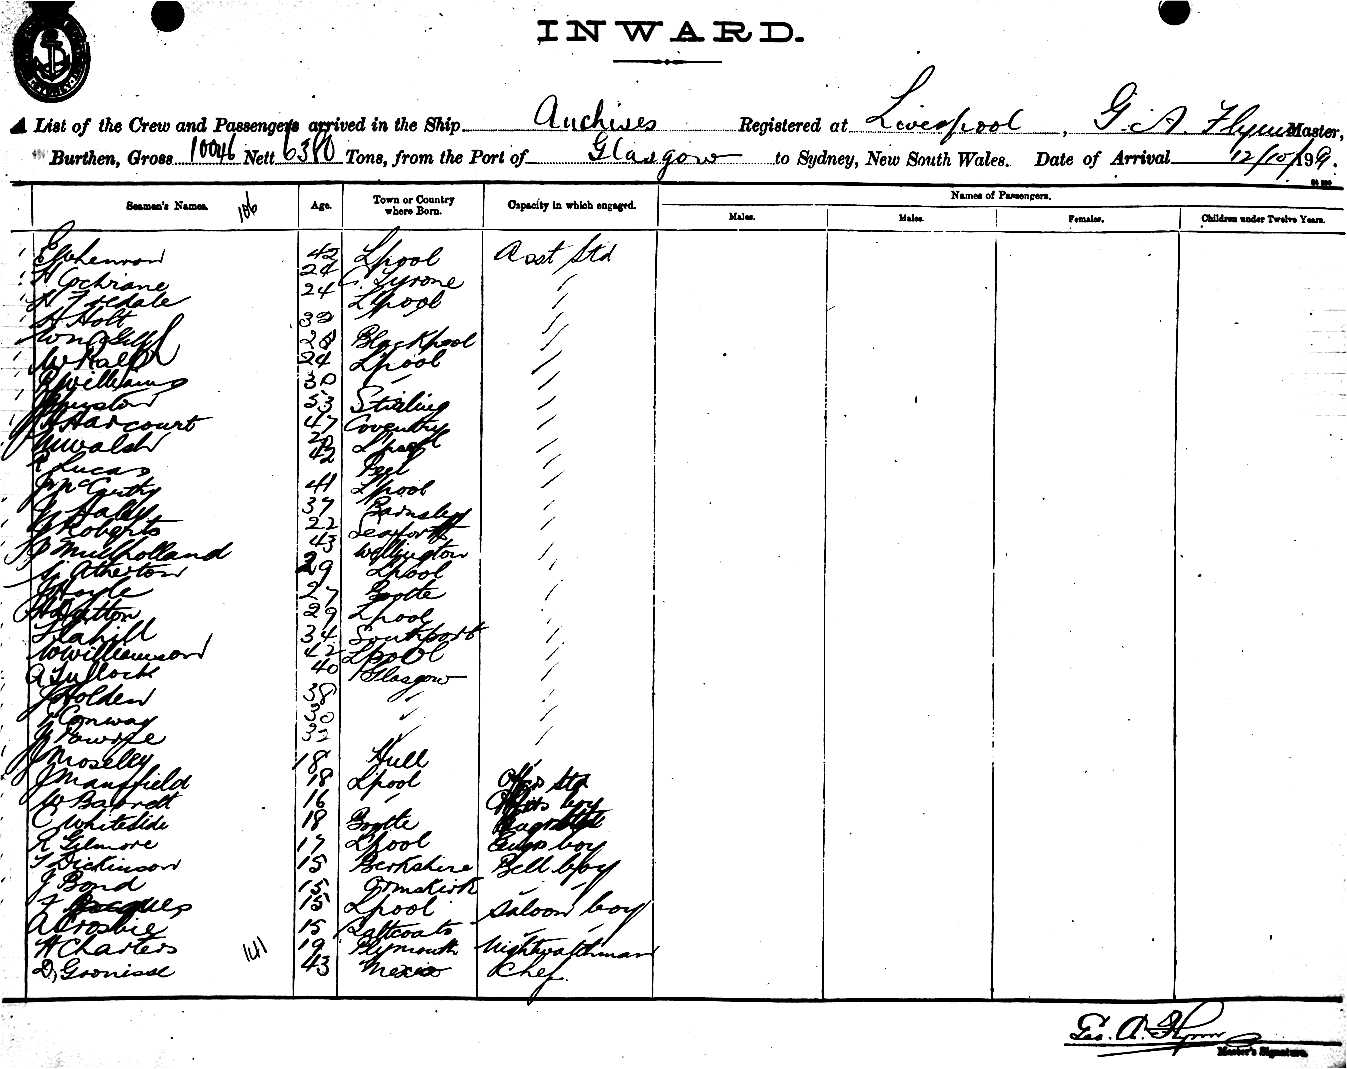 INWARD.
List of the Crew and Passengers arrived in the Ship Anchises Registered at Liverpool, G. A. Flynn Master,
Burthen, Gross 10046 Nett 6380 Tons, from the Port of Glasgow to Sydney, New South Wales. Date of Arrival 12/10/199.
Seamen's Names. 106 Age. Town or Country where Born. Capacity in which engaged. Names of Passengers.
Males. Males. Females. Children under Twelve Years.
42 Lpool Asst Std
H Cochrane 24 C. Tyrone "
H Iredale 24 Lpool "
H Holt 32 "
28 Blackpool "
W Ralph 24 Lpool "
R Williams 30 " "
53 Stirling "
Harcourt 47 Coventry "
M Walsh 20 Lpool "
R Lucas 42 Peel "
J McCarthy 41 Lpool "
Haley 37 Barnsley "
Roberts 22 Seaforth "
P Mulholland 43 Wellington "
Atherton 29 Lpool "
Hoyle 27 Bootle "
29 Lpool "
T Cahill 34 Southport "
W Williamson 42 Lpool "
A Tullock 40 Glasgow "
J Holden 38 " "
Conway 30 " "
32 " "
J Moseley 18 Hull "
J Mansfield 18 Lpool Std
W Barratt 16 " boy
C Whiteside 18 Bootle
R Gilmore 17 Lpool boy
T Dickinson 15 Berkshire Bell boy
J Bond 15 Ormskirk " "
F Jacques 15 Lpool Saloon boy
A Crosbie 15 Saltcoats " "
H Charters 141 19 Plymouth Nightwatchman
D, 43 Mexico Chef.
Geo. A. Flynn
Master's Signature.